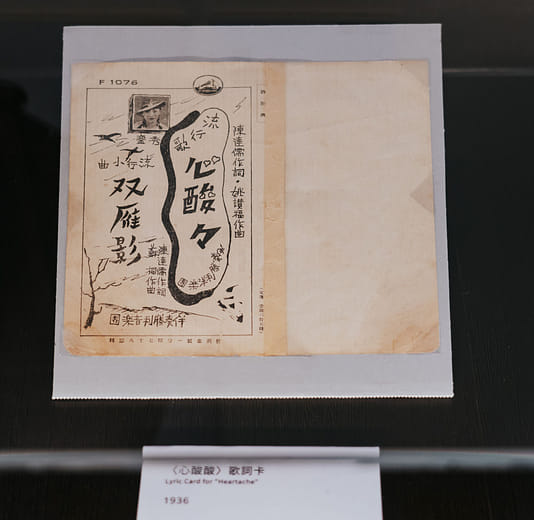 F 1076
流行歌
心酸々
陳達儒作詞・姚讚福作曲
流行小曲
双雁影
陳達儒作詞
蘇桐作曲
伴奏勝利吉樂團
〈心酸酸〉歌詞卡
Lyric Card for "Heartache"
1936